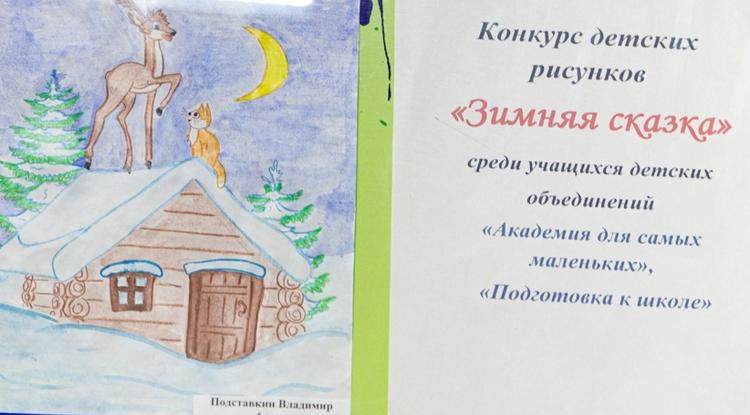 Конкурс детских
рисунков
«Зимняя сказка»
среди учащихся детских
объединений
«Академия для самых
маленьких»,
«Подготовка к школе»
Подставкин Владимир